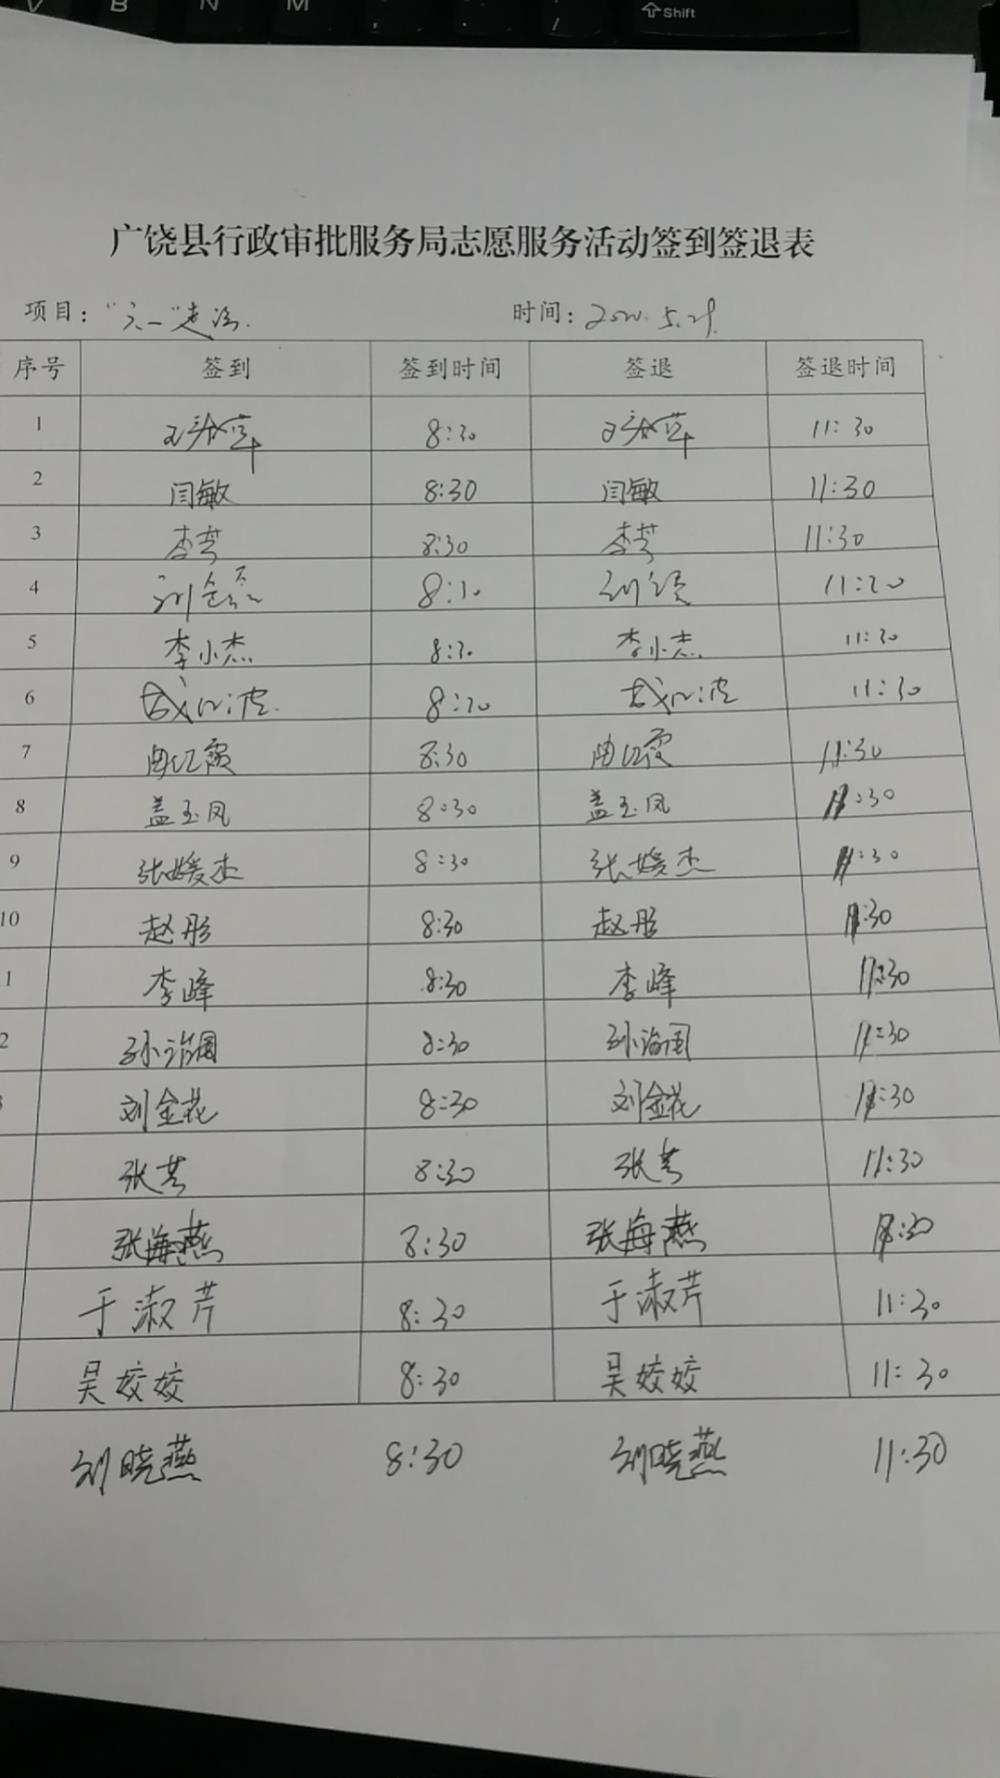 V B N M ⇧Shift
广饶县行政审批服务局志愿服务活动签到签退表
项目：“六一”走访. 时间：2020.5.29.
序号 签到 签到时间 签退 签退时间
1 8:30 11:30
2 闫敏 8:30 闫敏 11:30
3 李芳 8:30 李芳 11:30
4 8:30 11:30
5 李小杰 8:30 李小杰 11:30
6 8:30 11:30
7 曲红霞 8:30 曲红霞 11:30
8 盖玉凤 8:30 盖玉凤 11:30
9 张媛杰 8:30 张媛杰 11:30
10 赵彤 8:30 赵彤 11:30
1 李峰 8:30 李峰 11:30
2 8:30 11:30
刘金花 8:30 刘金花 11:30
8:30 11:30
张海燕 8:30 张海燕 11:30
于淑芹 8:30 于淑芹 11:30
吴姣姣 8:30 吴姣姣 11:30
刘晓燕 8:30 刘晓燕 11:30